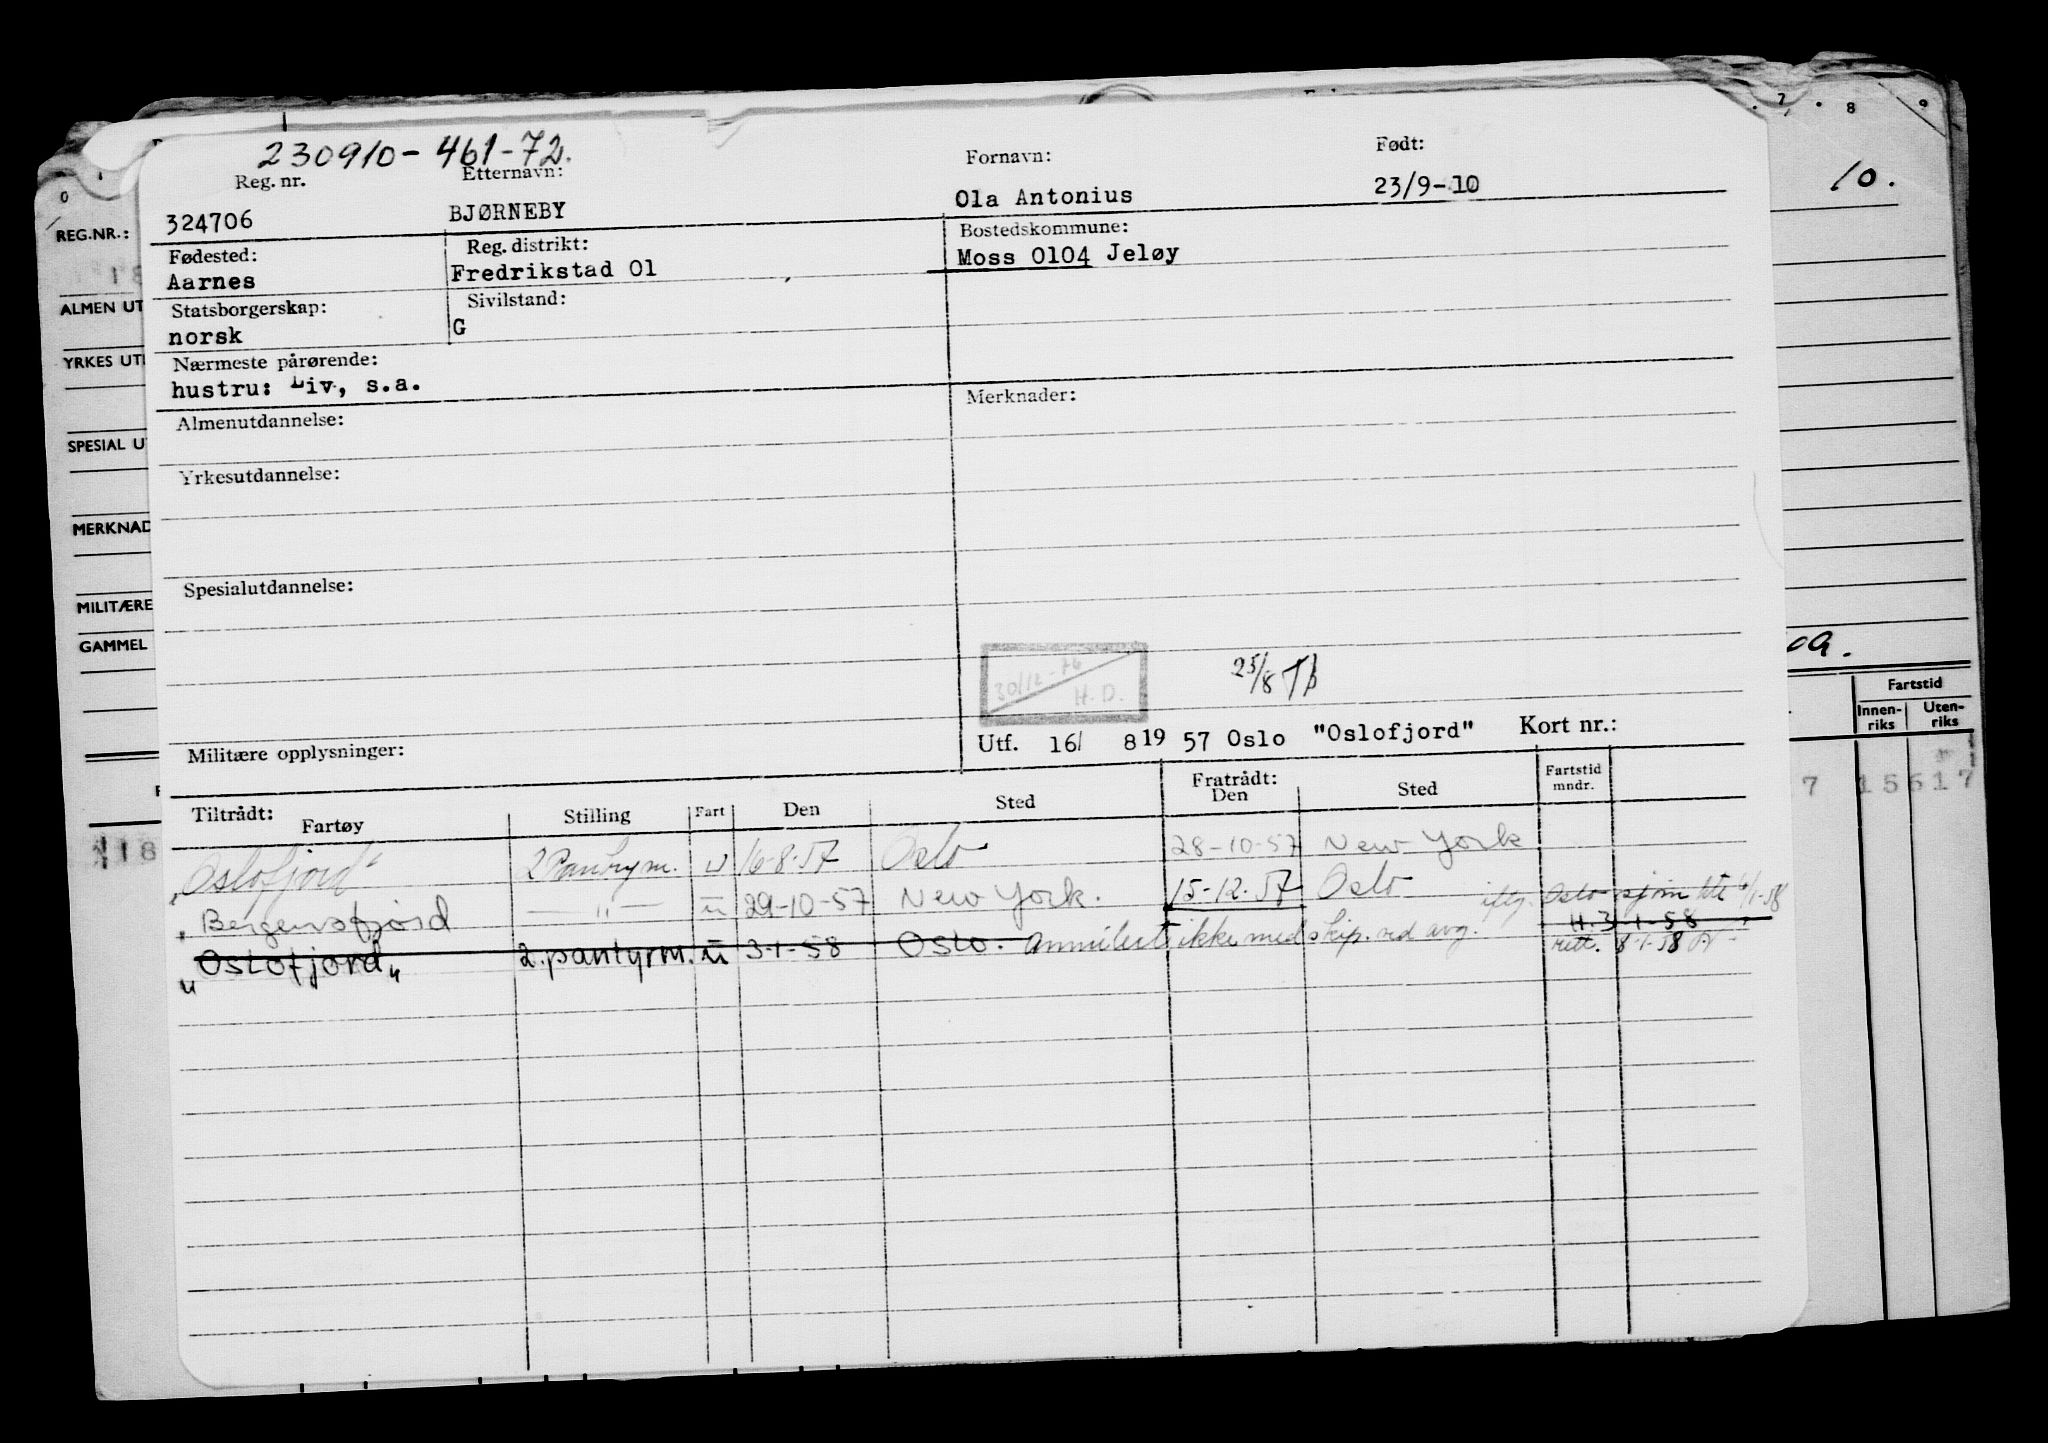 230910-461-72.
Reg. nr. Etternavn: Fornavn: Født:
324706 BJØRNEBY Ola Antonius 23/9-10
Fødested: Reg. distrikt: Bostedskommune:
Aarnes Fredrikstad 01 Moss 0104 Jeløy
Statsborgerskap: Sivilstand:
norsk G
Nærmeste pårørende:
hustru: Liv, s.a.
Almenutdannelse: Merknader:
Yrkesutdannelse:
Spesialutdannelse:
30/12-76
H.D.
25/8
Militære opplysninger: Utf. 16/ 8 19 57 Oslo "Oslofjord" Kort nr.:
Tiltrådt: Fratrådt:
Fartøy Stilling Fart Den Sted Den Sted Fartstid mndr.
"Oslofjord" 2 Pantrym. u 16-8-57 Oslo 28-10-57 New York
"Bergensfjord — " — u 29-10-57 New York. 15-12-57 Oslo iflg. Oslo sjøm ktr 6/1-58
H. 3-1-58
"Oslofjord" 2. pantyrm. u 3-1-58 Oslo. Annulert ikke med skip. ved avg. rett. 8-1-58
REG.NR.:
ALMEN UT
YRKES UT
SPESIAL U
MERKNAD
MILITÆRE
GAMMEL
118
7 8 9
10.
oa.
Fartstid
Innen-riks Uten-riks
7 15617